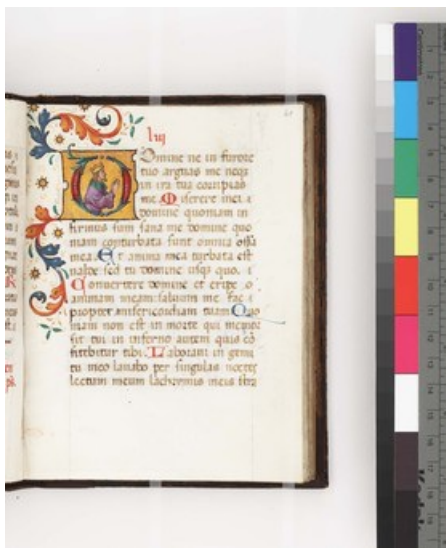 lvij
Domine ne in furore
tuo arguas me neqz
in ira tua corripias
me. Miserere mei
domine quoniam in
firmus sum sana me domine quo
niam conturbata sunt omnia ossa
mea. Et anima mea turbata est
valde sed tu domine usqz quo.
Convertere domine et eripe
animam meam: salvum me fac
propter misericordiam tuam. Quo
niam non est in morte qui memor
sit tui in inferno autem quis cō
fitebitur tibi. Laboravi in gemi
tu meo lavabo per singulas noctes
lectum meum lachrimis meis stra